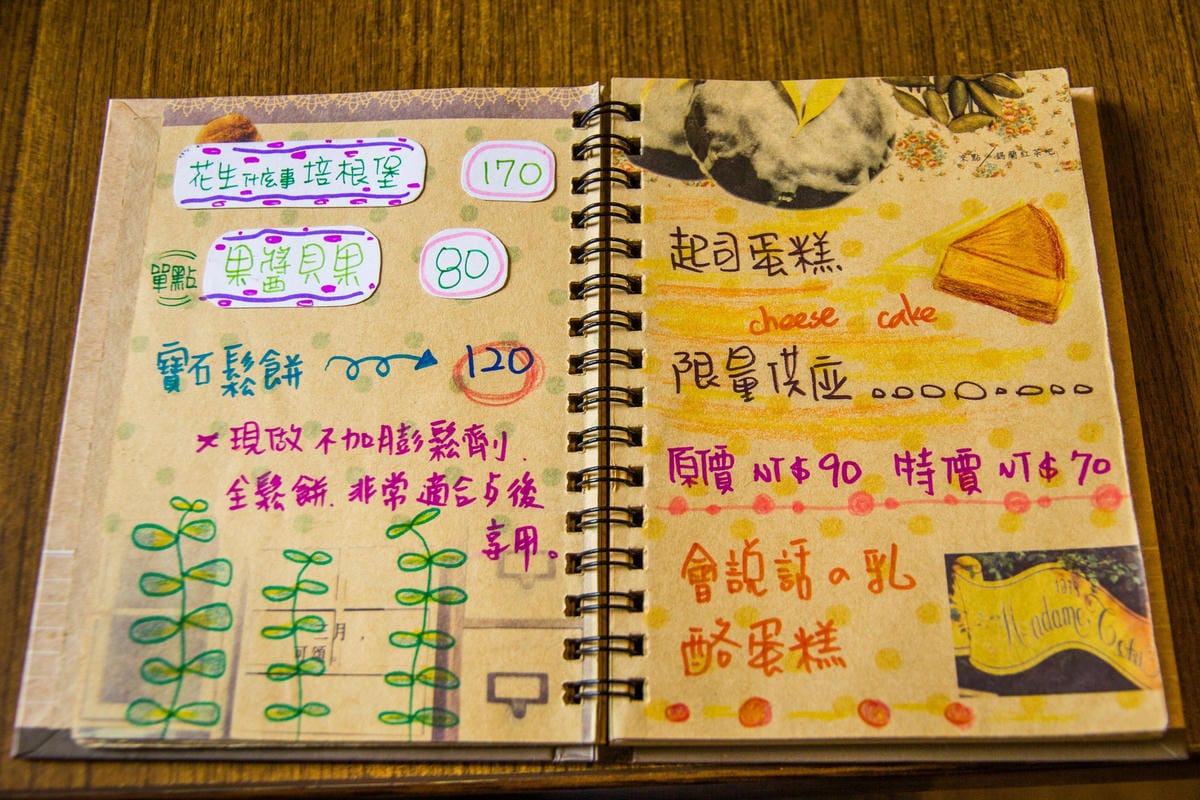 花生什麼事培根堡 170
單點 果醬貝果 80
寶石鬆餅 120
×現做不加膨鬆劑.
全鬆餅.非常適合午後
享用。
二月,
可領
茶點/錫蘭紅茶吧
起司蛋糕
cheese cake
限量供应
原價 NT$90 特價 NT$70
會說話の乳
酪蛋糕
Madame